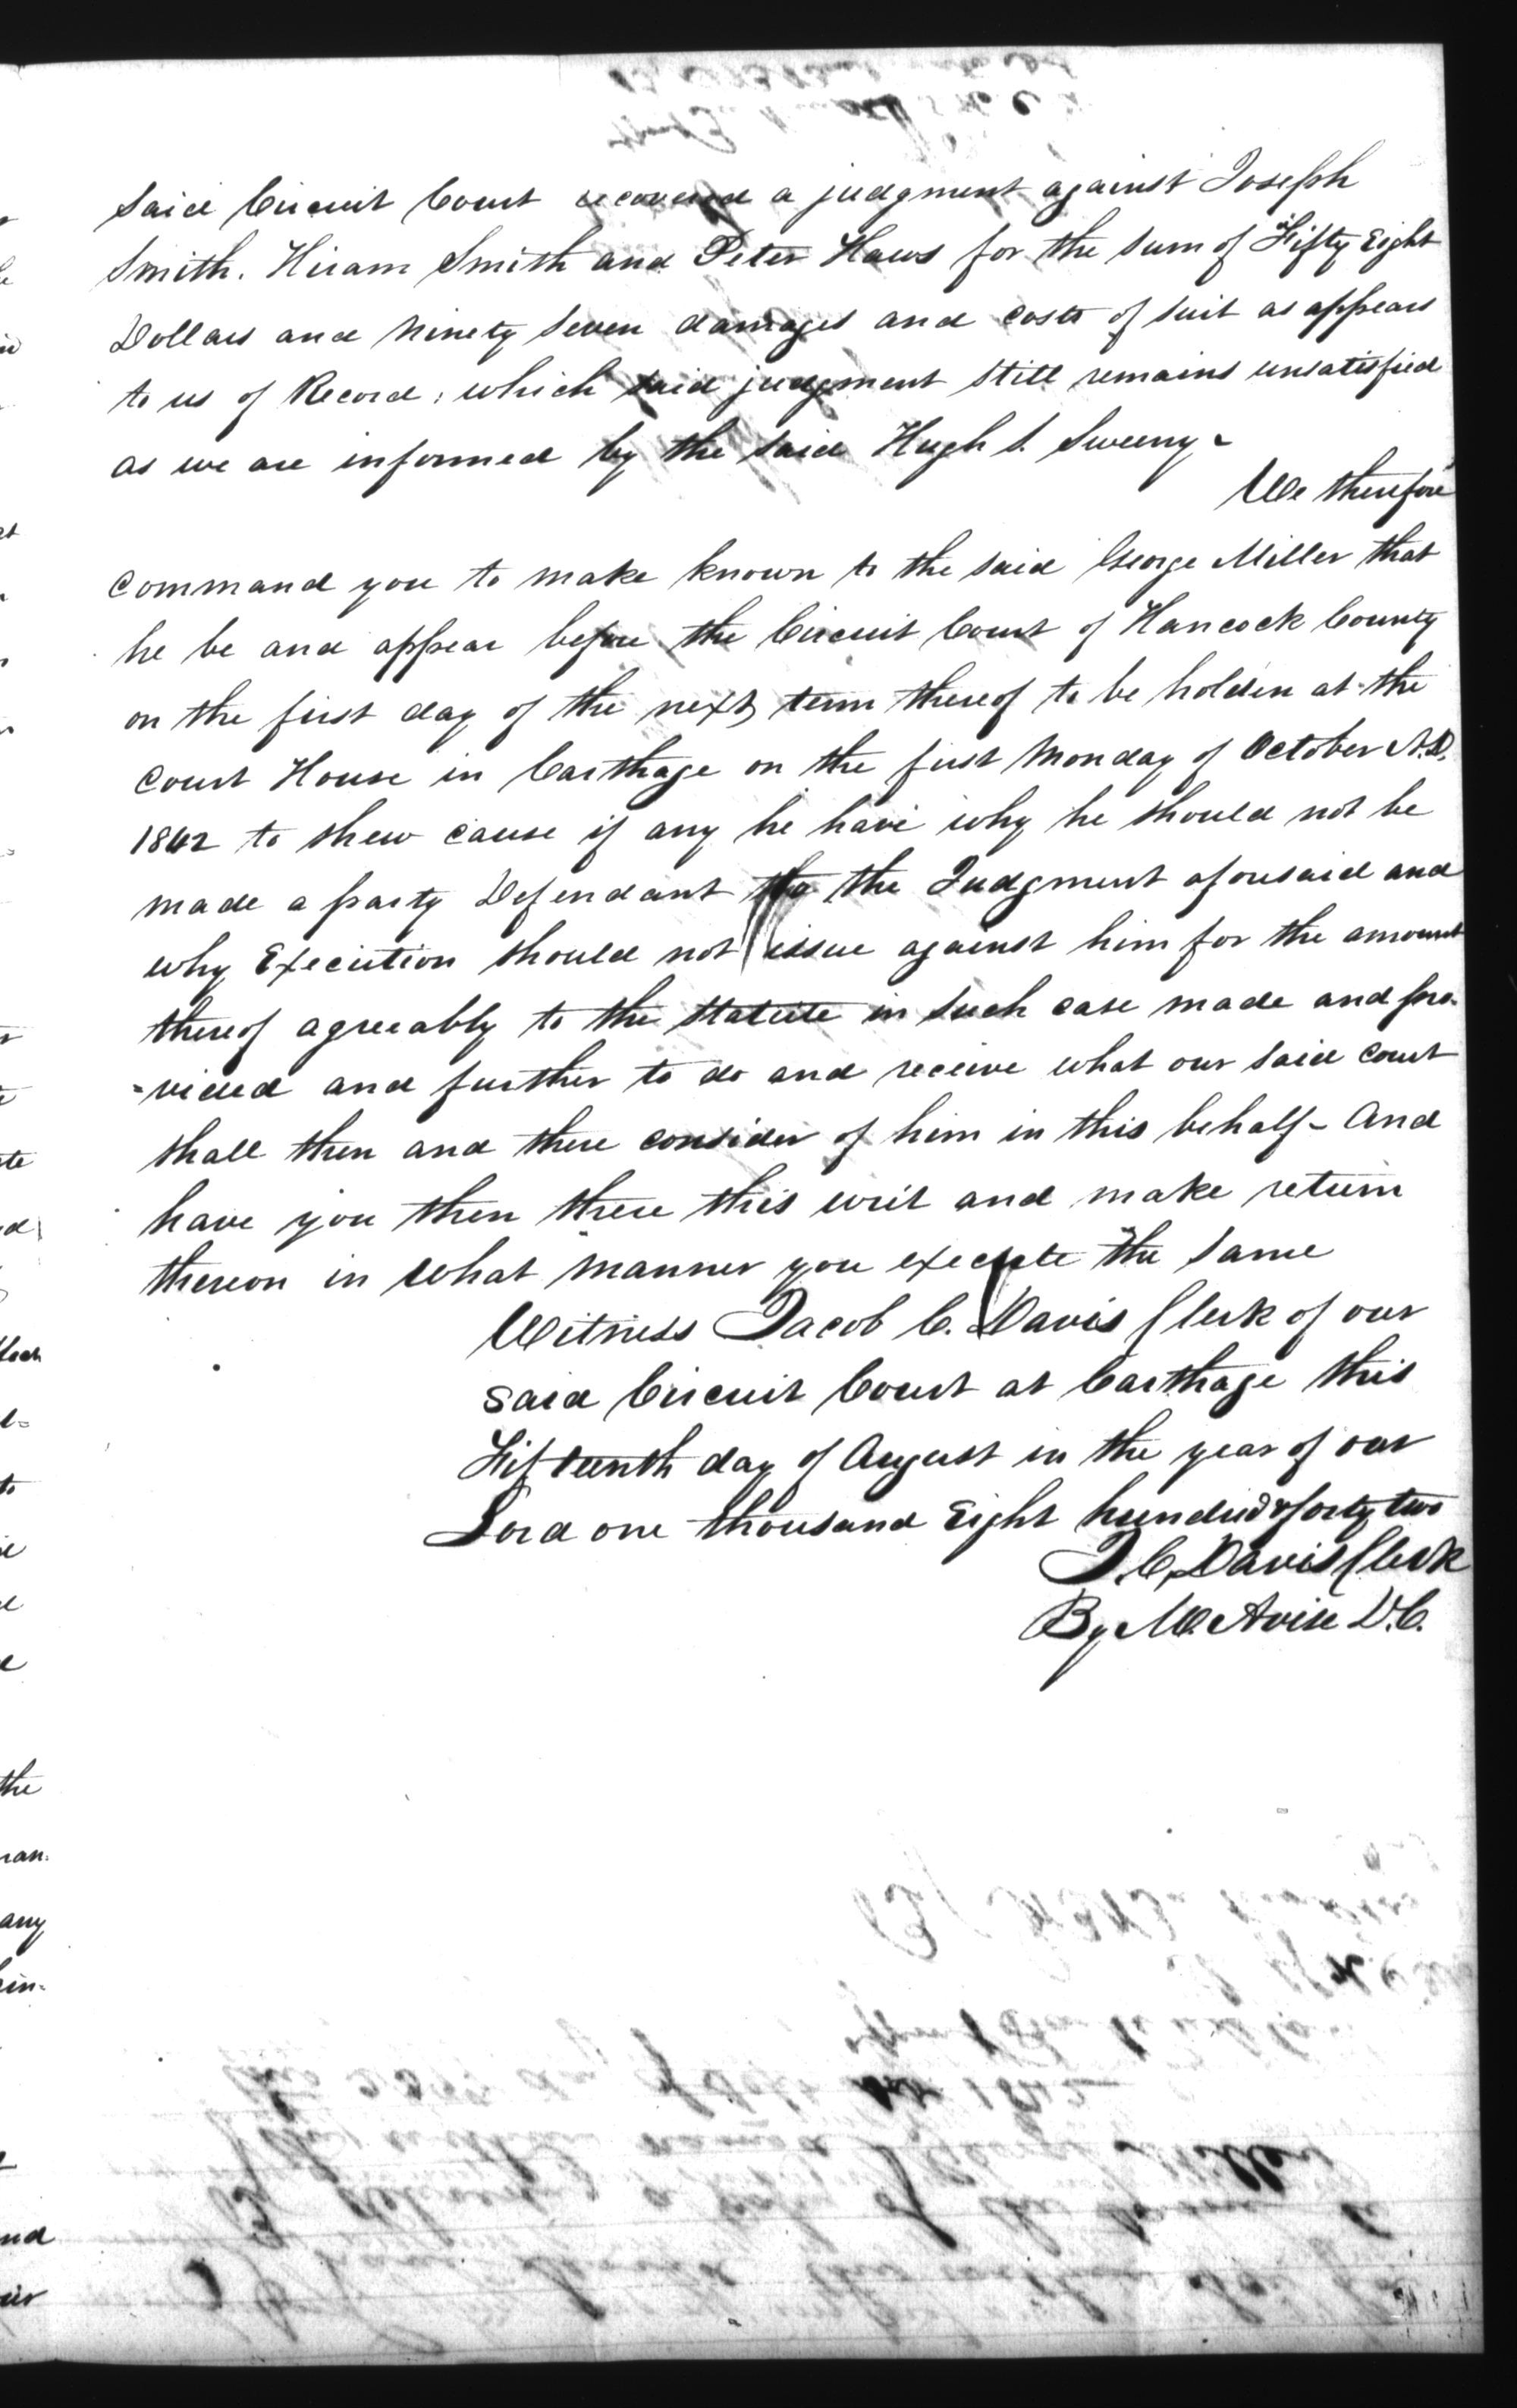 said Circuit Court recovered a judgment against Joseph
Smith. Hiram Smith and Peter Haws for the sum of Fifty Eight
Dollars and Ninety Seven damages and costs of suit as appears
to us of Record; which said judgment still remains unsatisfied
as we are informed by the said Hugh S. Sweeny-
We therefore
command you to make known to the said George Miller that
he be and appear before the Circuit Court of Hancock County
on the first day of the next term thereof to be holden at the
Court House in Carthage on the first Monday of October A.D.
1842 to shew cause if any he have why he should not be
made a party Defendant to the Judgment aforesaid and
why Execution should not issue against him for the amount
thereof agreeably to the Statute in such case made and pro-
=vided and further to do and receive what our said court
shall then and there consider of him in this behalf- And
have you then there this writ and make return
thereon in what manner you execute the same
Witness Jacob C. Davis Clerk of our
said Circuit Court at Carthage this
Fifteenth day of August in the year of our
Lord one thousand Eight hundred & forty two
J. C. Davis Clerk
By M. Avise D.C.